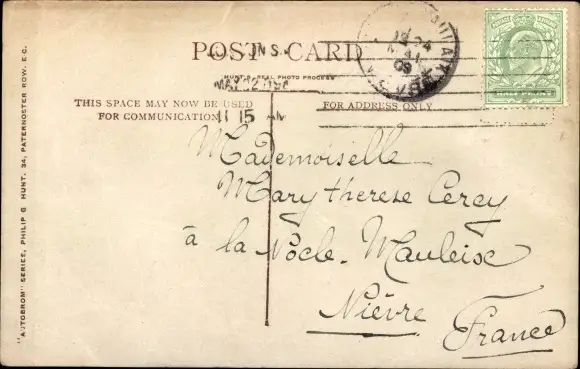 POST CARD
HUNT'S REAL PHOTO PROCESS
THIS SPACE MAY NOW BE USED
FOR COMMUNICATION.
FOR ADDRESS ONLY
11 15 AM
Mademoiselle
Mary therese Cercy
à la Nocle-Mauleise
Nièvre
France
"AUTOBROM" SERIES, PHILIP G HUNT, 34, PATERNOSTER ROW. E.C.